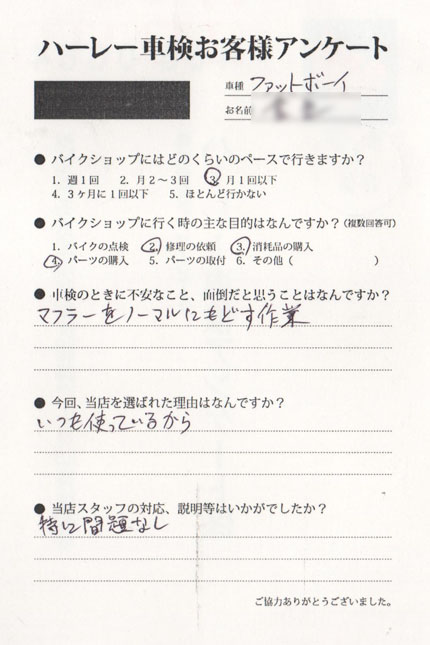 ハーレー車検お客様アンケート
車種 ファットボーイ
お名前
● バイクショップにはどのくらいのペースで行きますか？
1. 週1回 2. 月2〜3回 3. 月1回以下
4. 3ヶ月に1回以下 5. ほとんど行かない
● バイクショップに行く時の主な目的はなんですか？(複数回答可)
1. バイクの点検 2. 修理の依頼 3. 消耗品の購入
4. パーツの購入 5. パーツの取付 6. その他（ ）
● 車検のときに不安なこと、面倒だと思うことはなんですか？
マフラーをノーマルにもどす作業
● 今回、当店を選ばれた理由はなんですか？
いつも使っているから
● 当店スタッフの対応、説明等はいかがでしたか？
特に問題なし
ご協力ありがとうございました。